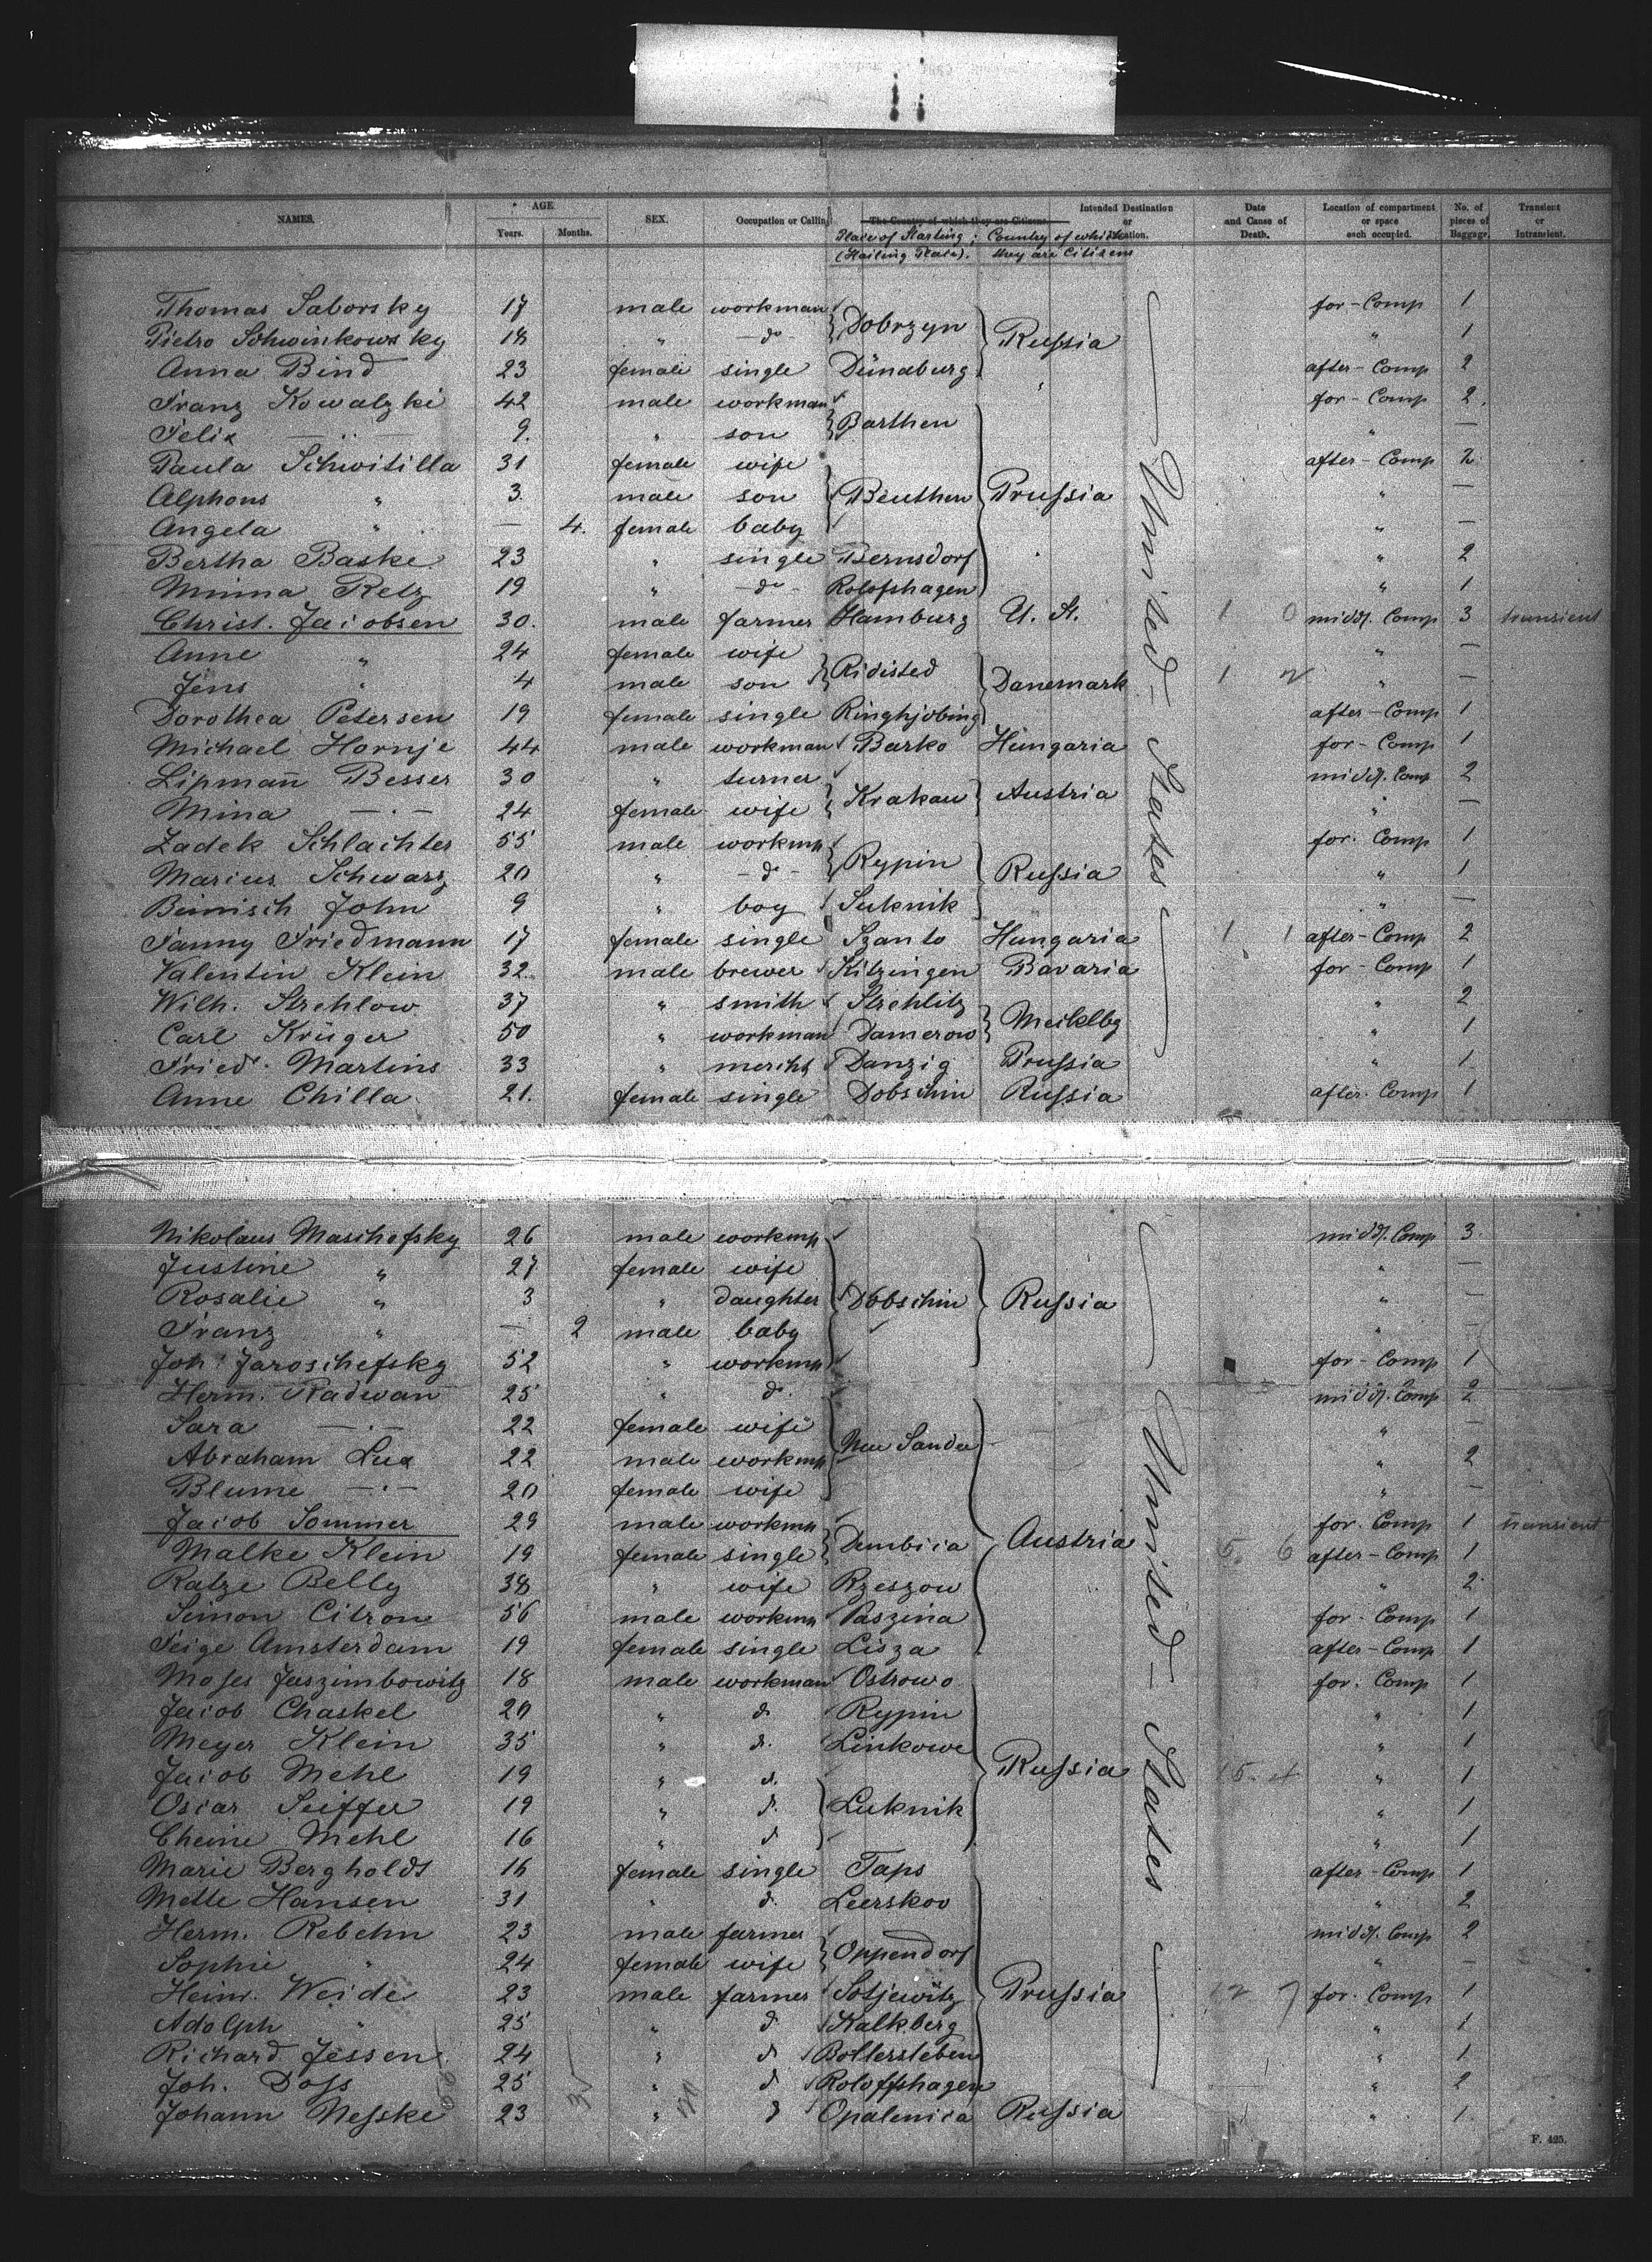 NAMES. AGE Years. Months. SEX. Occupation or Calling. The Country of which they are Citizens. Intended Destination or Location. Date and Cause of Death. Location of compartment or space each occupied. No. of pieces of Baggage. Transient or Intransient.
Place of Starting; (Hailing Place). Country of which they are Citizens
Thomas Saborsky 17 male workman for-Comp 1
Pietro Schwinkowsky 18 " do Dobrzyn Russia " 1
Anna Bind 23 female single Dünaburg " after-Comp 2
Franz Kowalzki 42 male workman for-Comp 2.
Felix —"— 9. " son Barthen " —
Paula Schwitilla 31 female wife after-Comp 2
Alphons " 3 male son Beuthen Prussia " —
Angela " — 4. female baby " —
Bertha Baske 23 " single Bernsdorf " " 2
Minna Retz 19 " do Rolofshagen " 1
Christ. Jacobsen 30. male farmer Hamburg U. St. 1 0 middl. Comp 3 transient
Anne " 24 female wife " —
Jens " 4 male son Ridisted Danemark 1 2 " —
Dorothea Petersen 19 female single Ringhjobing after-Comp 1
Michael Hornje 44 male workman Barko Hungaria for-Comp 1
Lipmann Besser 30 " turner middl. Comp 2
Mina —"— 24 female wife Krakau Austria " —
Zadek Schlachter 55 male workmn for. Comp 1
Marius Schwarz 20 " do Rypin Russia " 1
Beinisch John 9 " boy Luknik " —
Fanny Friedmann 17 female single Szanto Hungaria 1 1 after-Comp 2
Valentin Klein 32 male brewer Kitzingen Bavaria for-Comp 1
Wilh. Strehlow 37 " smith Strehlitz " 2
Carl Krüger 50 " workman Damerow Mecklbg " 1
Fried. Martins 33 " mercht Danzig Prussia " 1
Anne Chilla 21. female single Dobschin Russia after. Comp 1
United-States
Nikolaus Maschefsky 26 male workmn middl. Comp 3.
Justine " 27 female wife " —
Rosalie " 3 " daughter Dobschin Russia " —
Franz " — 2 male baby " —
Joh. Jaroschefsky 52 " workmn for-Comp 1
Herm. Radwan 25 " do. middl. Comp 2
Sara —"— 22 female wife " —
Abraham Lux 22 male workmn Neu Sandee " 2
Blume —"— 20 female wife " —
Jacob Sommer 29 male workmn for. Comp 1 transient
Malke Klein 19 female single Dembica Austria 5. 6 after-Comp 1
Ratze Belly 38 " wife Rzeszow " 2
Simon Citron 56 male workmn Paszina for. Comp 1
Feige Amsterdam 19 female single Lisza after-Comp 1
Moses Jaszimbowitz 18 male workman Ostrowo for. Comp 1
Jacob Chaskel 20 " do Rypin " 1
Meyer Klein 35 " do. Linkowe " 1
Jacob Mehl 19 " do. Russia 15. 4 " 1
Oscar Seiffer 19 " do. Luknik " 1
Cheine Mehl 16 " do " 1
Marie Bergholdt 16 female single Taps after-Comp 1
Mette Hansen 31 " do. Leerskov " 2
Herm. Rebehn 23 male farmer middl. Comp 2
Sophie " 24 female wife Oppendorf " —
Heinr. Weide 23 male farmer Sotjewitz Prussia 12 7 for. Comp 1
Adolph " 25 " do Kalkberg " 1
Richard Jessen 24 " do Bollersleben " 1
Joh. Doss 25 " do Roloffshagen " 2
Johann Nesske 23 " do Opalenica Russia " 1
United-States
F. 425.